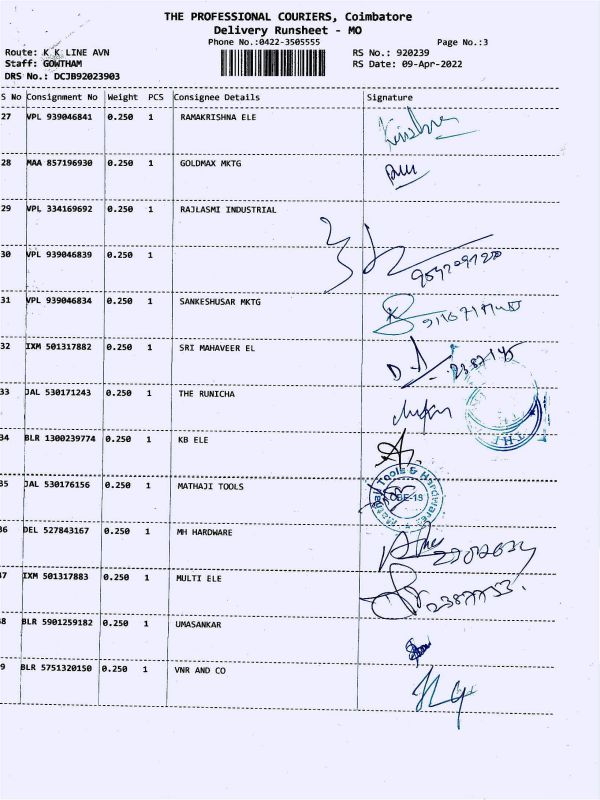 THE PROFESSIONAL COURIERS, Coimbatore
Delivery Runsheet - MO
Phone No.:0422-3505555 Page No.:3
Route: K K LINE AVN RS No.: 920239
Staff: GOWTHAM RS Date: 09-Apr-2022
DRS No.: DCJB92023903
S No Consignment No Weight PCS Consignee Details Signature
27 VPL 939046841 0.250 1 RAMAKRISHNA ELE Krishna
28 MAA 857196930 0.250 1 GOLDMAX MKTG
29 VPL 334169692 0.250 1 RAJLASMI INDUSTRIAL
30 VPL 939046839 0.250 1
31 VPL 939046834 0.250 1 SANKESHUSAR MKTG
32 IXM 501317882 0.250 1 SRI MAHAVEER EL
33 JAL 530171243 0.250 1 THE RUNICHA
34 BLR 1300239774 0.250 1 KB ELE
35 JAL 530176156 0.250 1 MATHAJI TOOLS
Mathaji Tools & Hardwares
CBE-18
36 DEL 527843167 0.250 1 MH HARDWARE
37 IXM 501317883 0.250 1 MULTI ELE
38 BLR 5901259182 0.250 1 UMASANKAR
39 BLR 5751320150 0.250 1 VNR AND CO